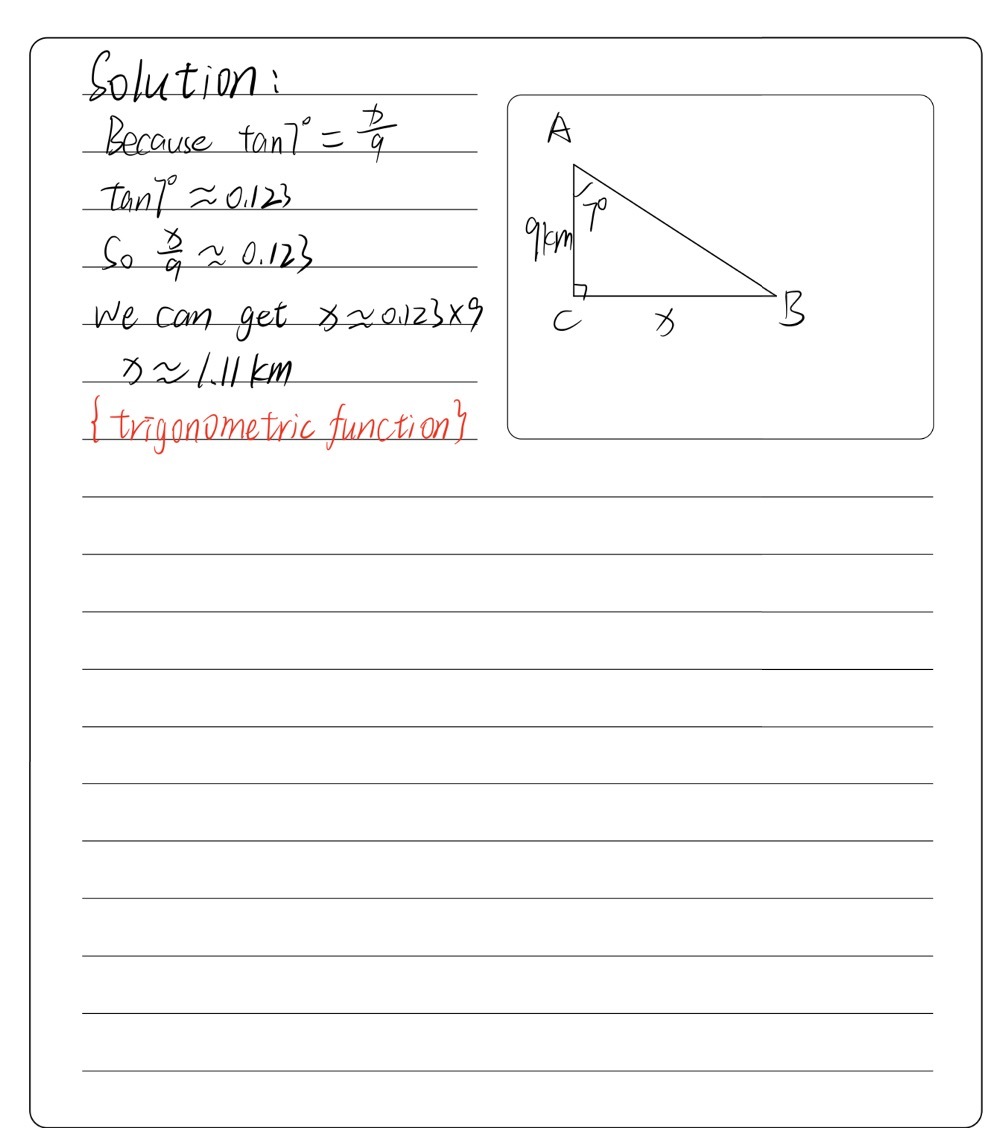 Solution:
Because tan7° = x/9
tan7° ≈ 0.123
So x/9 ≈ 0.123
We can get x ≈ 0.123×9
x ≈ 1.11 km
{trigonometric function}
A
7°
9km
C
x
B